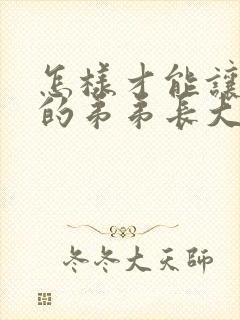 怎樣才能讓
的弟弟長大
冬冬大天師